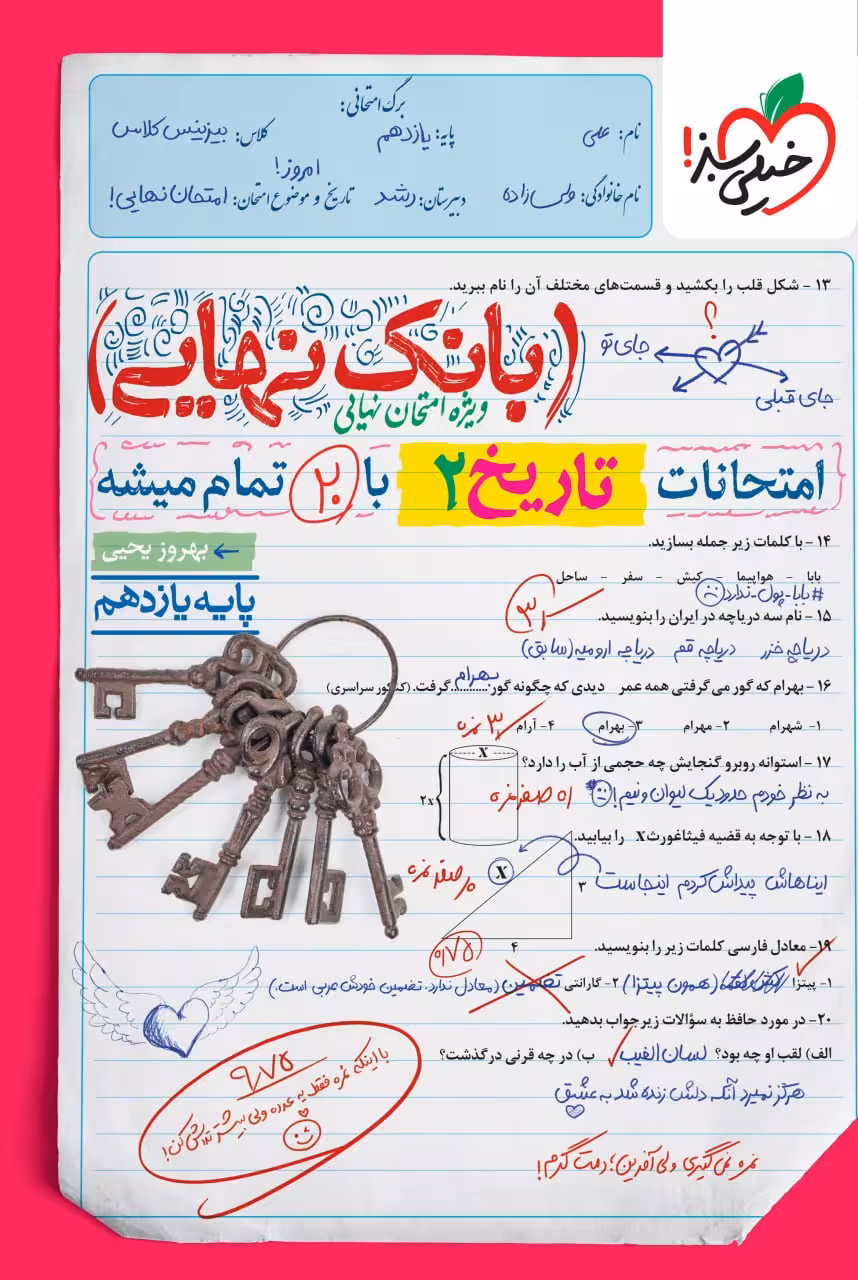 خیلی سبز!
برگ امتحانی:
نام: علی پایه: یازدهم کلاس: بیزینس کلاس
نام خانوادگی: ولی‌زاده دبیرستان: رشد تاریخ و موضوع امتحان: امروز! امتحان نهایی!
۱۳ - شکل قلب را بکشید و قسمت‌های مختلف آن را نام ببرید.
؟
جای تو
جای قبلی
(بانک نهایی)
ویژه امتحان نهایی
امتحانات تاریخ ۲ با ۲۰ تمام میشه
بهروز یحیی
پایه یازدهم
۱۴ - با کلمات زیر جمله بسازید.
بابا - هواپیما - کیش - سفر - ساحل
#بابا-پول-ندارد
۱۵ - نام سه دریاچه در ایران را بنویسید.
دریاچه خزر دریاچه قم دریاچه ارومیه (سابق)
۱۶ - بهرام که گور می‌گرفتی همه عمر دیدی که چگونه گور بهرام گرفت. (کنکور سراسری)
۱- شهرام ۲- مهرام ۳- بهرام ۴- آرام
۱۷ - استوانه روبرو گنجایش چه حجمی از آب را دارد؟
X
۲x
به نظر خودم حدود یک لیوان و نیم!
صفر نمره
۱۸ - با توجه به قضیه فیثاغورث X را بیابید.
ایناهاش پیداش کردم اینجاست
X
۳
۴
صفر نمره
۰/۷۵
۱۹ - معادل فارسی کلمات زیر را بنویسید.
۱- پیتزا (همون پیتزا) ۲- گارانتی تضمین (معادل ندارد. تضمین خودش عربی است.)
۲۰- در مورد حافظ به سؤالات زیر جواب بدهید.
الف) لقب او چه بود؟ لسان الغیب ب) در چه قرنی درگذشت؟
هرگز نمیرد آنکه دلش زنده شد به عشق
۹/۷۵
با اینکه نمره فقط یه عدده ولی بیشتر تلاش کن!
نمره نمی‌گیری ولی آفرین؛ دمت گرم!